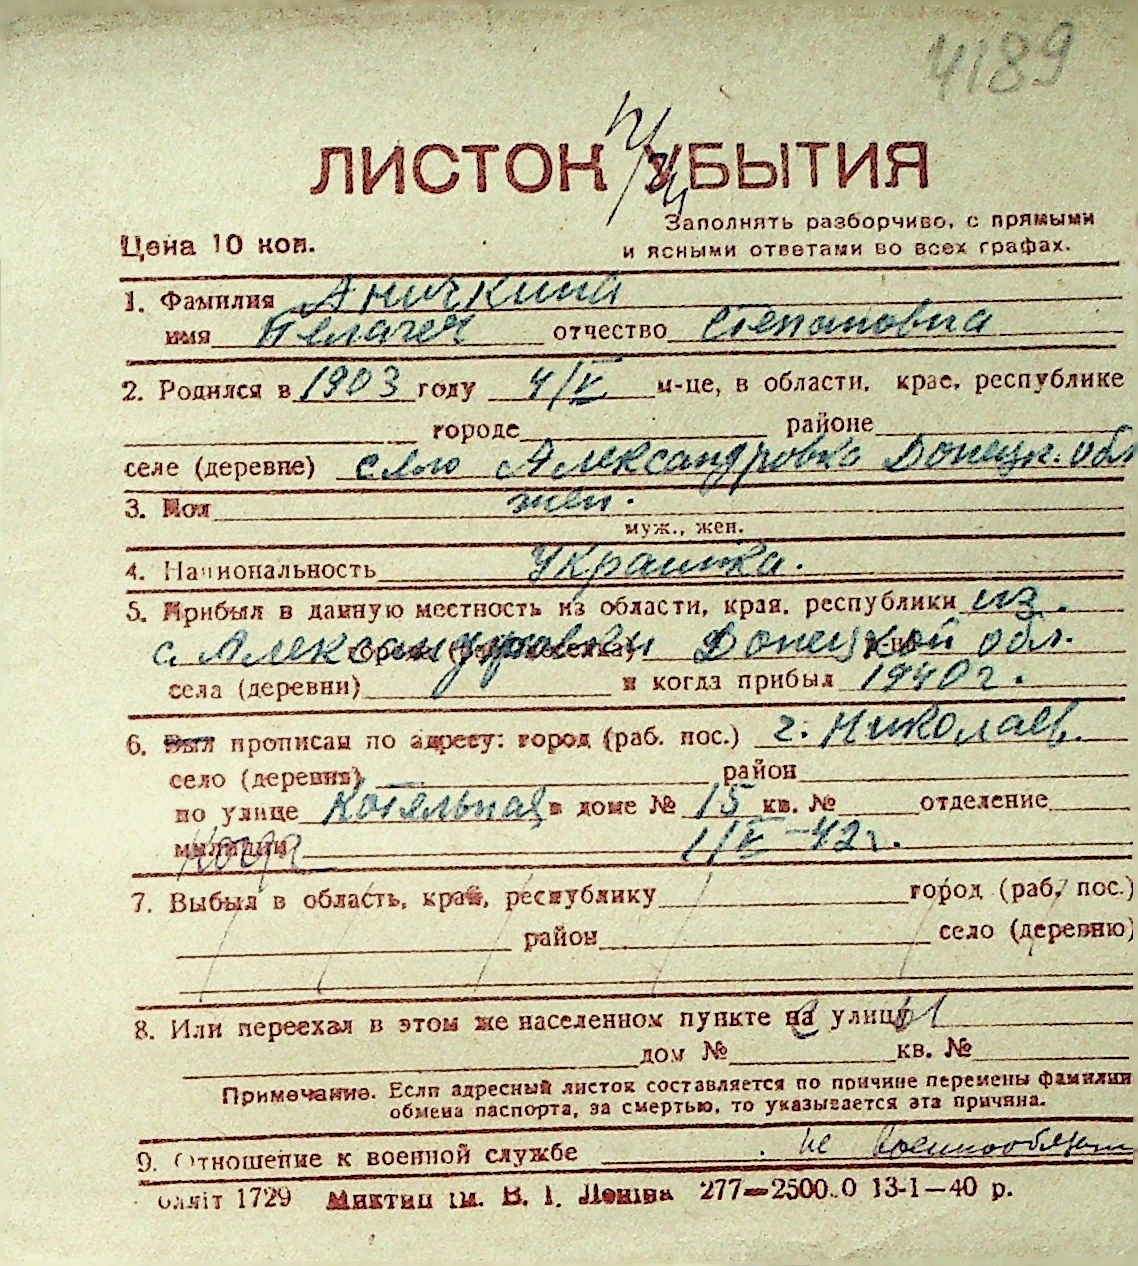 4189
ЛИСТОК УБЫТИЯ
Заполнять разборчиво, с прямыми
Цена 10 коп.
и ясными ответами во всех графах.
1. Фамилия Аничкина
имя Пелагея отчество Степановна
2. Родился в 1903 году 4/V м-це, в области, крае, республике
городе районе
селе (деревне) село Александровка Донецк. обл
3. Пол жен.
муж., жен.
4. Национальность Украинка.
5. Прибыл в данную местность из области, края, республики из
с. Александровки Донецкой обл.
села (деревни) и когда прибыл 1940 г.
6. Был прописан по адресу: город (раб. пос.) г. Николаев.
село (деревня) район
по улице Котельная в доме № 15 кв. № отделение
милиции Когда 1/V-42 г.
7. Выбыл в область, край, республику город (раб. пос.)
район село (деревню)
8. Или переехал в этом же населенном пункте на улицу
дом № кв. №
Примечание. Если адресный листок составляется по причине перемены фамилии
обмена паспорта, за смертью, то указывается эта причина.
9. Отношение к военной службе не военнообязан
1729 ім. В. І. Леніна 277—2500.0 13-1—40 р.